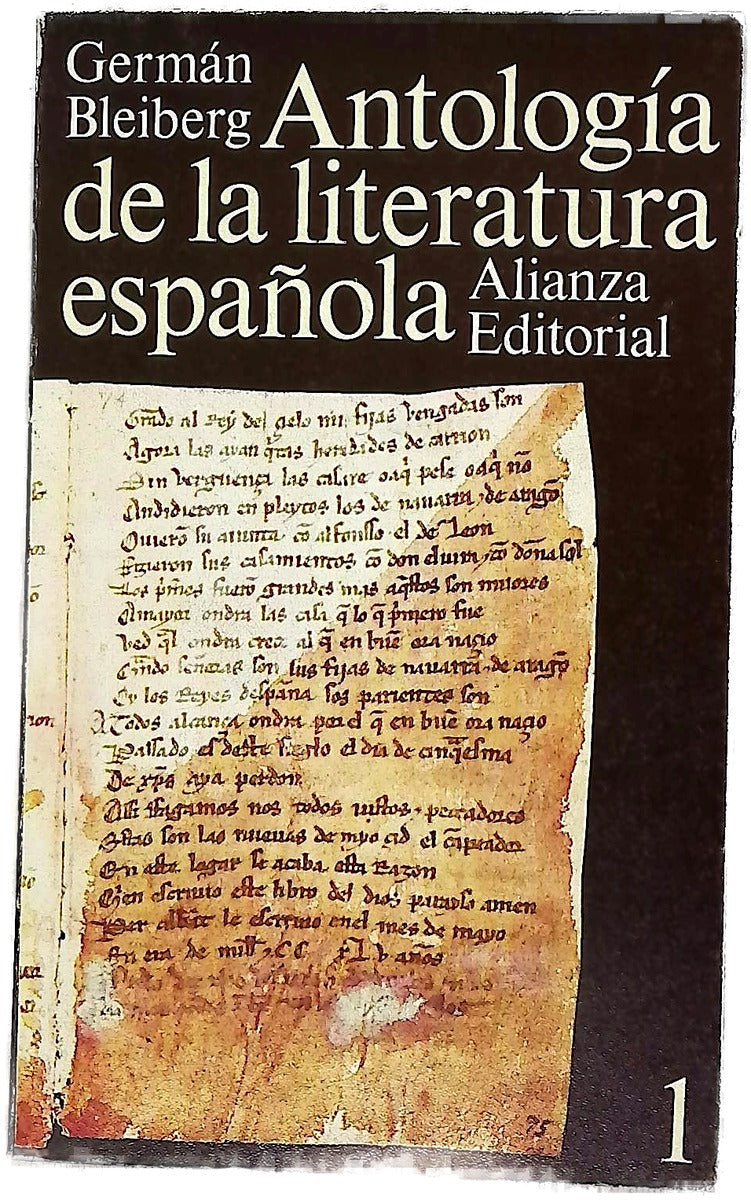 Germán
Bleiberg
Antología
de la literatura
española
Alianza
Editorial
Grado al Rey del çielo mis fijas vengadas son
Agora las ayan q̃tas heredades de carrion
Sin verguença las casare o aq̃ pese o aq̃ nõ
Andidieron en pleytos los de nauarra ⁊ de aragõ
Ouierõ su aiunta cõ alfonsso el de Leon
Fizieron sus casamientos cõ don eluira ⁊ cõ doña sol
Los p̃meros fuerõ grandes mas aq̃stos son miiores
A mayor ondra las casa q̃ lo q̃ p̃mero fue
Ved q̃l ondra creçe al q̃ en buẽ ora naçio
Quãdo señoras son sus fijas de nauarra ⁊ de aragõ
Oy los Reyes despaña sos parientes son
A todos alcança ondra por el q̃ en buẽ ora naçio
Passado es deste sieglo el dia de cinq̃esma
De xp̃s aya perdon
Assi ffagamos nos todos iustos ⁊ peccadores
Estas son las nueuas de myo çid el cãpeador
En este logar se acaba esta Razon
Quien escriuio este libro del dios parayso amen
Per abbat le escriuio en el mes de mayo
En era de mill ⁊ CC XLV años
75
1